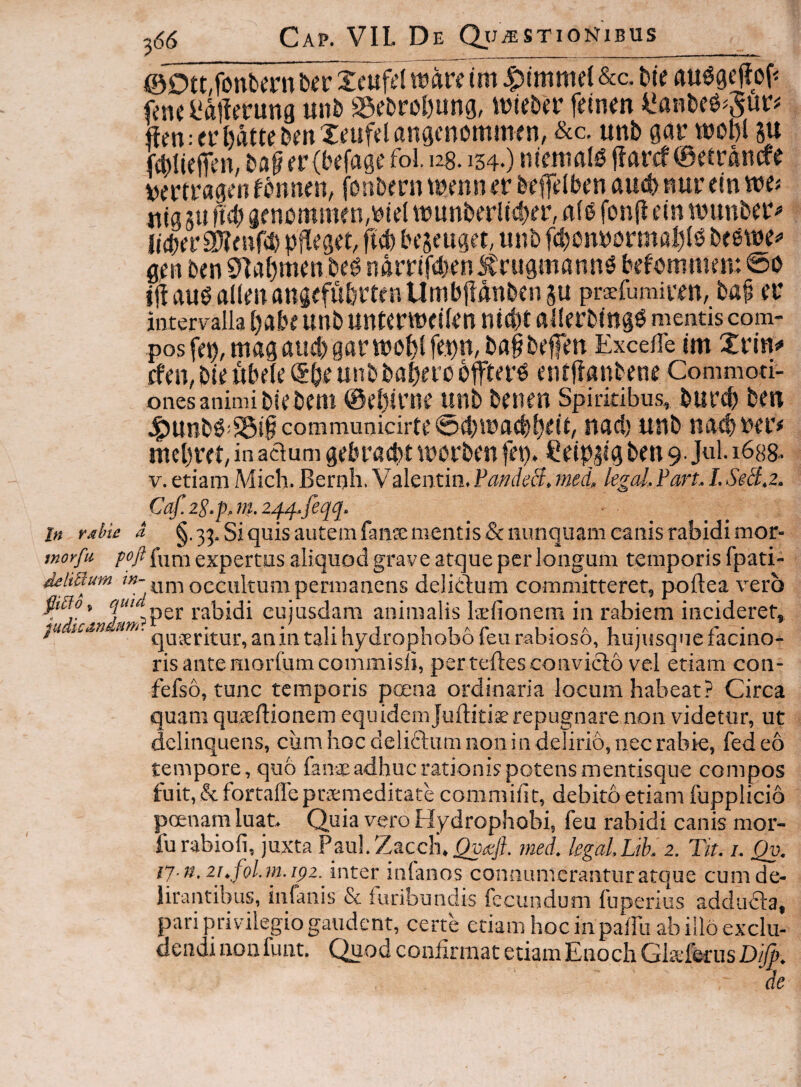 366 CAP. VII. DE QUÆSTIONIBUS
GOtt, sondern der Teufel wäre im Himmel &c. die ausgestos-
sene Lästerung und Bedrohung, wieder seinen Landes-Für-
sten: er hätte den Teufel angenommen, &c. und gar wohl zu
schliessen, daß er (besage fol. 128. 134.) niemals starck Getrâncke
vertragen können, sondern wenn er desselben auch nur ein we-
nig zu sich genommen, viel wunderlicher, als sonst ein wunder-
licher Mensch pfleget, sich bezeuget, und schonvormahls deswe-
gen den Nahmen des närrischen Krugmanns bekommen: So
ist aus allen angeführten Umbständen zu præsumiren, daß er
intervalla habe und unterweilen nicht allerdings mentis com-
pos sey, mag auch gar wohl seyn, daß dessen Excesse im Trin-
cken, die übele Ehe und dahero öffters entstandene Commoti-
ones animi die dem Gehirne und denen Spiritibus, durch den
Hunds-Biß communicirte Schwachheit, nach und nach ver-
mehret, in actum gebracht worden sey. Leipzig den 9. Jul. 1688.
v. etiam Mich. Bernh. Valentin. Pandect. med. legal. Part. I. Sect. 2.
Cas. 28. p. m. 244. seqq.
In rabie à morsu post delictum inflicto, quid judicandum?
§. 33. Si quis autem sanæ mentis & nunquam canis rabidi mor-
sum expertus aliquod grave atque per longum temporis spati-
um occultum permanens delictum committeret, postea verò
per rabidi cujusdam animalis læsionem in rabiem incideret,
quæritur, an in tali hydrophobô seu rabiosô, hujusque facino-
ris ante morsum commissi, per testes convictô vel etiam con-
fessô, tunc temporis pœna ordinaria locum habeat? Circa
quam quæstionem equidem Justitiæ repugnare non videtur, ut
delinquens, cùm hoc delictum non in deliriô, nec rabie, sed eô
tempore, quô sanæ adhuc rationis potens mentisque compos
fuit, & fortasse præmeditatè commisit, debitô etiam suppliciô
pœnam luat. Quia verò Hydrophobi, seu rabidi canis mor-
su rabiosi, juxta Paul. Zacch. Quæst. med. legal. Lib. 2. Tit. 1. Qv.
17. n. 21. fol. m. 192. inter insanos connumerantur atque cum de-
lirantibus, insanis & furibundis secundum superius adducta,
pari privilegio gaudent, certè etiam hoc in passu ab illô exclu-
dendi non sunt. Quod confirmat etiam Enoch Glæserus Disp.
de